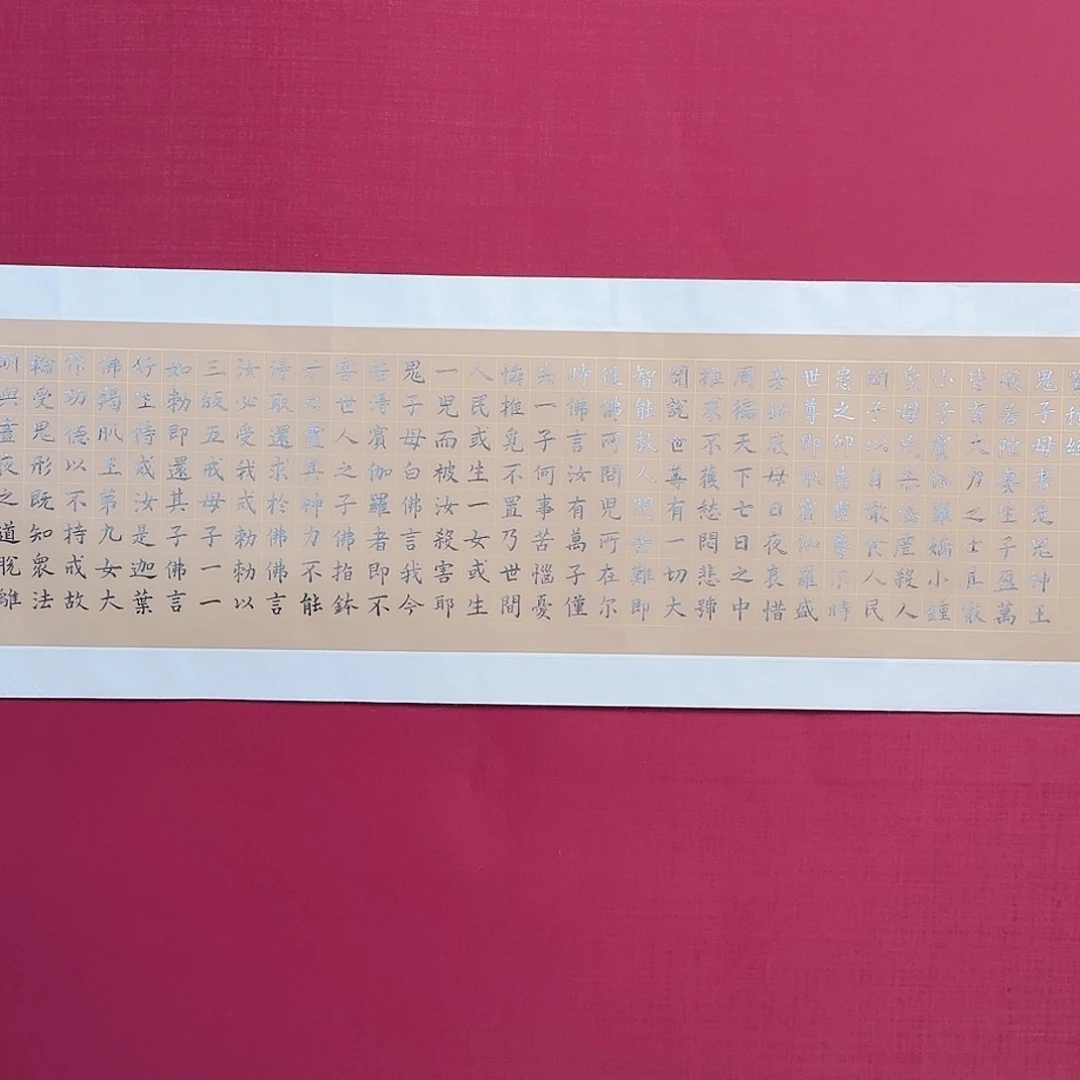 鬼子母者是鬼神王
般善陀妻生子盈萬
皆有大力之士真散
小子賓伽羅嬌小鍾
愛母虐殺人
子以自敢食人民
患之仰告世尊尔時
世尊即取賓伽羅盛
著鉢底母日夜哀惜
周徧天下七日之中
推求不獲愁悶悲號
聞說世尊有一切大
智能救人間苦難即
往佛所問兒所在尔
時佛言汝有萬子僅
失一子何事苦惱憂
憐推覓不置乃世間
人民或生一女或生
一兒而被汝殺害耶
鬼子母白佛言我今
若得賓伽羅者即不
害世人之子佛指鉢
示之盡其神力不能
得取還求於佛佛言
汝必受我戒勅勅以
三皈五戒母子一一
如勅即還其子佛言
好生持戒汝是迦葉
佛羯肌王第九女大
作功德以不持戒故
輪受鬼形既知眾法
與晝夜之道脫離